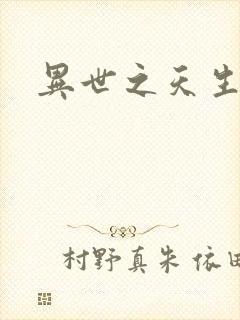 異世之天生
村野真朱 依田